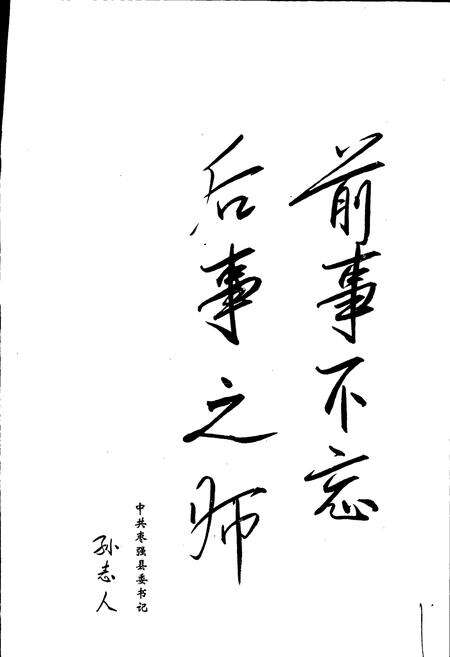 前事不忘
后事之师
中共枣强县委书记
孙志人